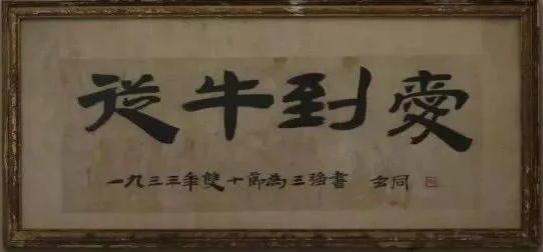 从牛到爱
一九三三年雙十節為三強書 玄同